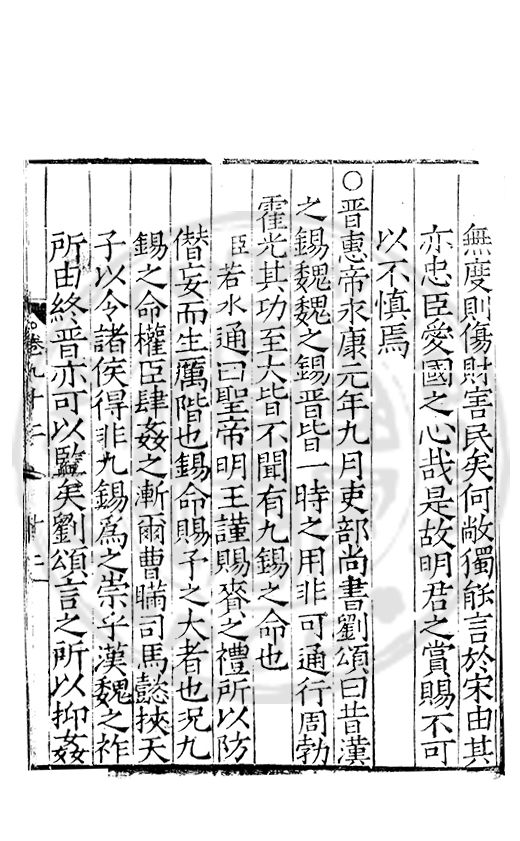 無度則傷財害民矣何敞獨能言於宋由其
亦忠臣愛國之心哉是故明君之賞賜不可
以不慎焉
○晋惠帝永康元年九月吏部尚書劉頌曰昔漢
之錫魏魏之錫晋皆一時之用非可通行周勃
霍光其功至大皆不聞有九錫之命也
臣若水通曰聖帝明王謹賜賚之禮所以防
僣妄而生厲階也錫命賜予之大者也况九
錫之命權臣肆姦之漸爾曹瞞司馬懿挾天
子以令諸侯得非九錫爲之崇乎漢魏之祚
所由終晋亦可以監矣劉頌言之所以抑姦
卷九十二
廿二